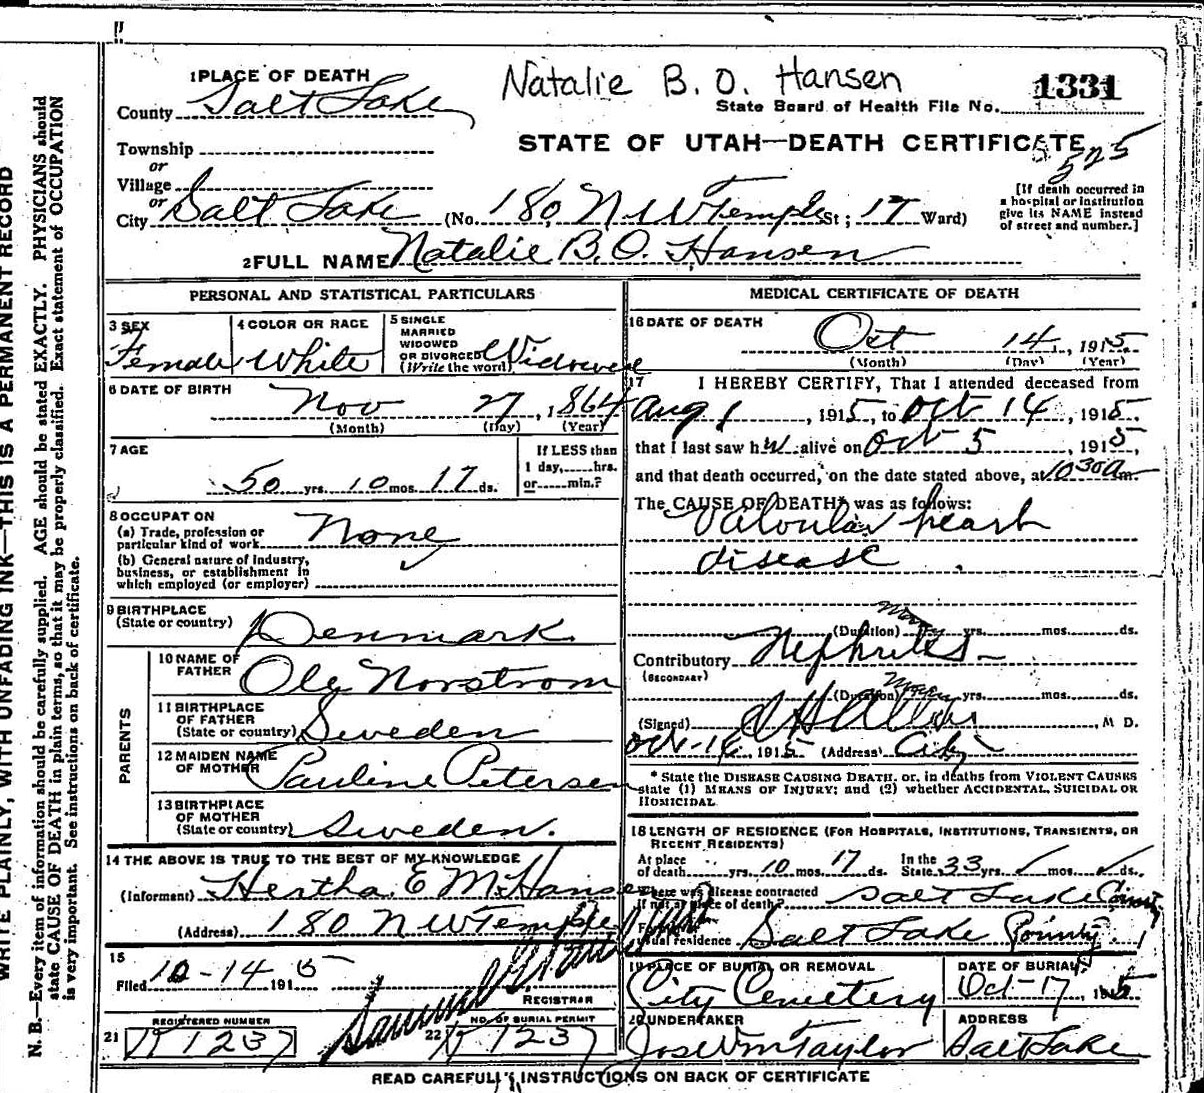 WRITE PLAINLY, WITH UNFADING INK—THIS IS A PERMANENT RECORD
N. B.—Every item of information should be carefully supplied. AGE should be stated EXACTLY. PHYSICIANS should
state CAUSE OF DEATH in plain terms, so that it may be properly classified. Exact statement of OCCUPATION
is very important. See instructions on back of certificate.
Natalie B. O. Hansen
1 PLACE OF DEATH
County Salt Lake
State Board of Health File No. 1331
Township
or
STATE OF UTAH—DEATH CERTIFICATE
525
Village
or
City Salt Lake (No. 180, N W Temple St; 17 Ward)
[If death occurred in
a hospital or institution
give its NAME instead
of street and number.]
2 FULL NAME Natalie B. O. Hansen
PERSONAL AND STATISTICAL PARTICULARS
3 SEX
Female
4 COLOR OR RACE
White
5 SINGLE
MARRIED
WIDOWED
OR DIVORCED
(Write the word) Widowed
6 DATE OF BIRTH
Nov 27, 1864
(Month) (Day) (Year)
7 AGE
50 yrs. 10 mos. 17 ds.
If LESS than
1 day, hrs.
or min.?
8 OCCUPATION
(a) Trade, profession or
particular kind of work None
(b) General nature of industry,
business, or establishment in
which employed (or employer)
9 BIRTHPLACE
(State or country) Denmark
PARENTS
10 NAME OF
FATHER Ole Norstrom
11 BIRTHPLACE
OF FATHER
(State or country) Sweden
12 MAIDEN NAME
OF MOTHER Pauline Petersen
13 BIRTHPLACE
OF MOTHER
(State or country) Sweden.
14 THE ABOVE IS TRUE TO THE BEST OF MY KNOWLEDGE
(Informant) Hertha E M Hansen
(Address) 180 N W Temple
15
Filed 10-14 1915
REGISTRAR
21 REGISTERED NUMBER
1237
22 NO. OF BURIAL PERMIT
1237
MEDICAL CERTIFICATE OF DEATH
16 DATE OF DEATH
Oct 14, 1915
(Month) (Day) (Year)
17 I HEREBY CERTIFY, That I attended deceased from
Aug 1, 1915, to Oct 14, 1915,
that I last saw her alive on Oct 5, 1915,
and that death occurred, on the date stated above, at 10 30 a m.
The CAUSE OF DEATH* was as follows:
Valvular heart
disease
(Duration) yrs. mos. ds.
Contributory Nephritis
(SECONDARY)
(Duration) yrs. mos. ds.
(Signed) M D.
Oct-14, 1915 (Address) City
* State the DISEASE CAUSING DEATH, or, in deaths from VIOLENT CAUSES
state (1) MEANS OF INJURY; and (2) whether ACCIDENTAL, SUICIDAL OR
HOMICIDAL
18 LENGTH OF RESIDENCE (FOR HOSPITALS, INSTITUTIONS, TRANSIENTS, OR
RECENT RESIDENTS)
At place
of death yrs. 10 mos. 17 ds. In the
State 33 yrs. ds.
Where was disease contracted
if not at place of death? Salt Lake County
usual residence Salt Lake County.
19 PLACE OF BURIAL OR REMOVAL
City Cemetery
DATE OF BURIAL
Oct-17, 1915
20 UNDERTAKER
Jos Wm Taylor
ADDRESS
Salt Lake
READ CAREFULLY INSTRUCTIONS ON BACK OF CERTIFICATE